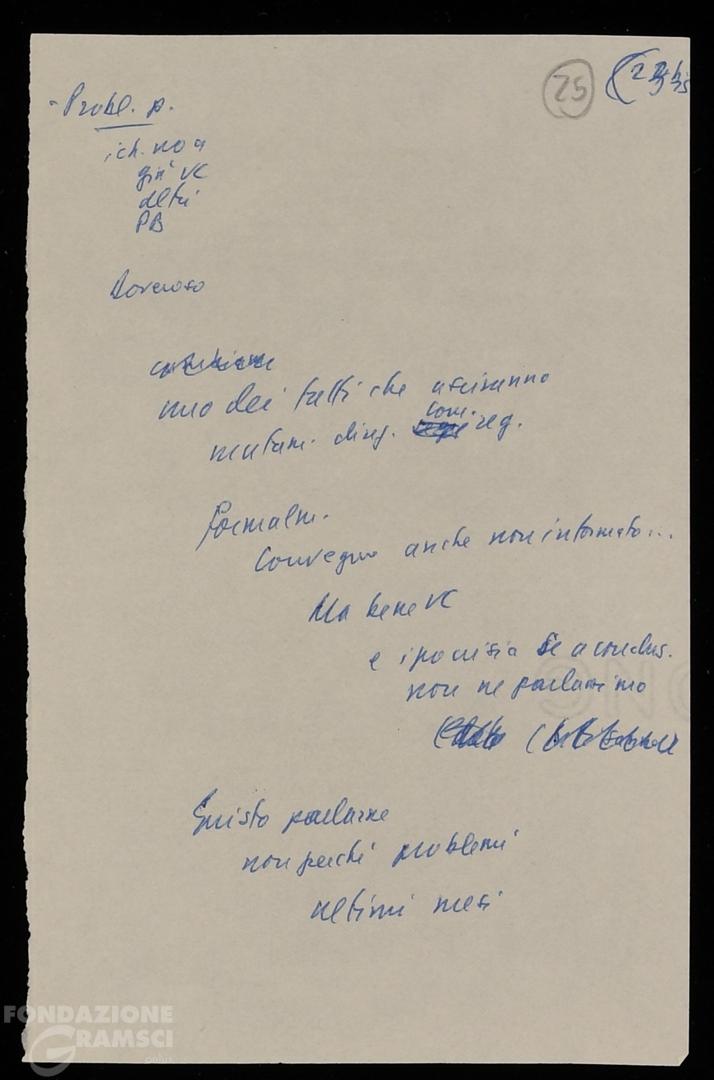 25
- Probl. p.
già VC
altri
PB
Doveroso
uno dei fatti che usciranno
mutam. dirig. com. reg.
Formalm.
Convegno anche non informato...
Ma bene VC
e ipocrisia se a conclus.
non ne parlassimo
Giusto parlarne
non perché problemi
ultimi mesi
FONDAZIONE
GRAMSCI
onlus